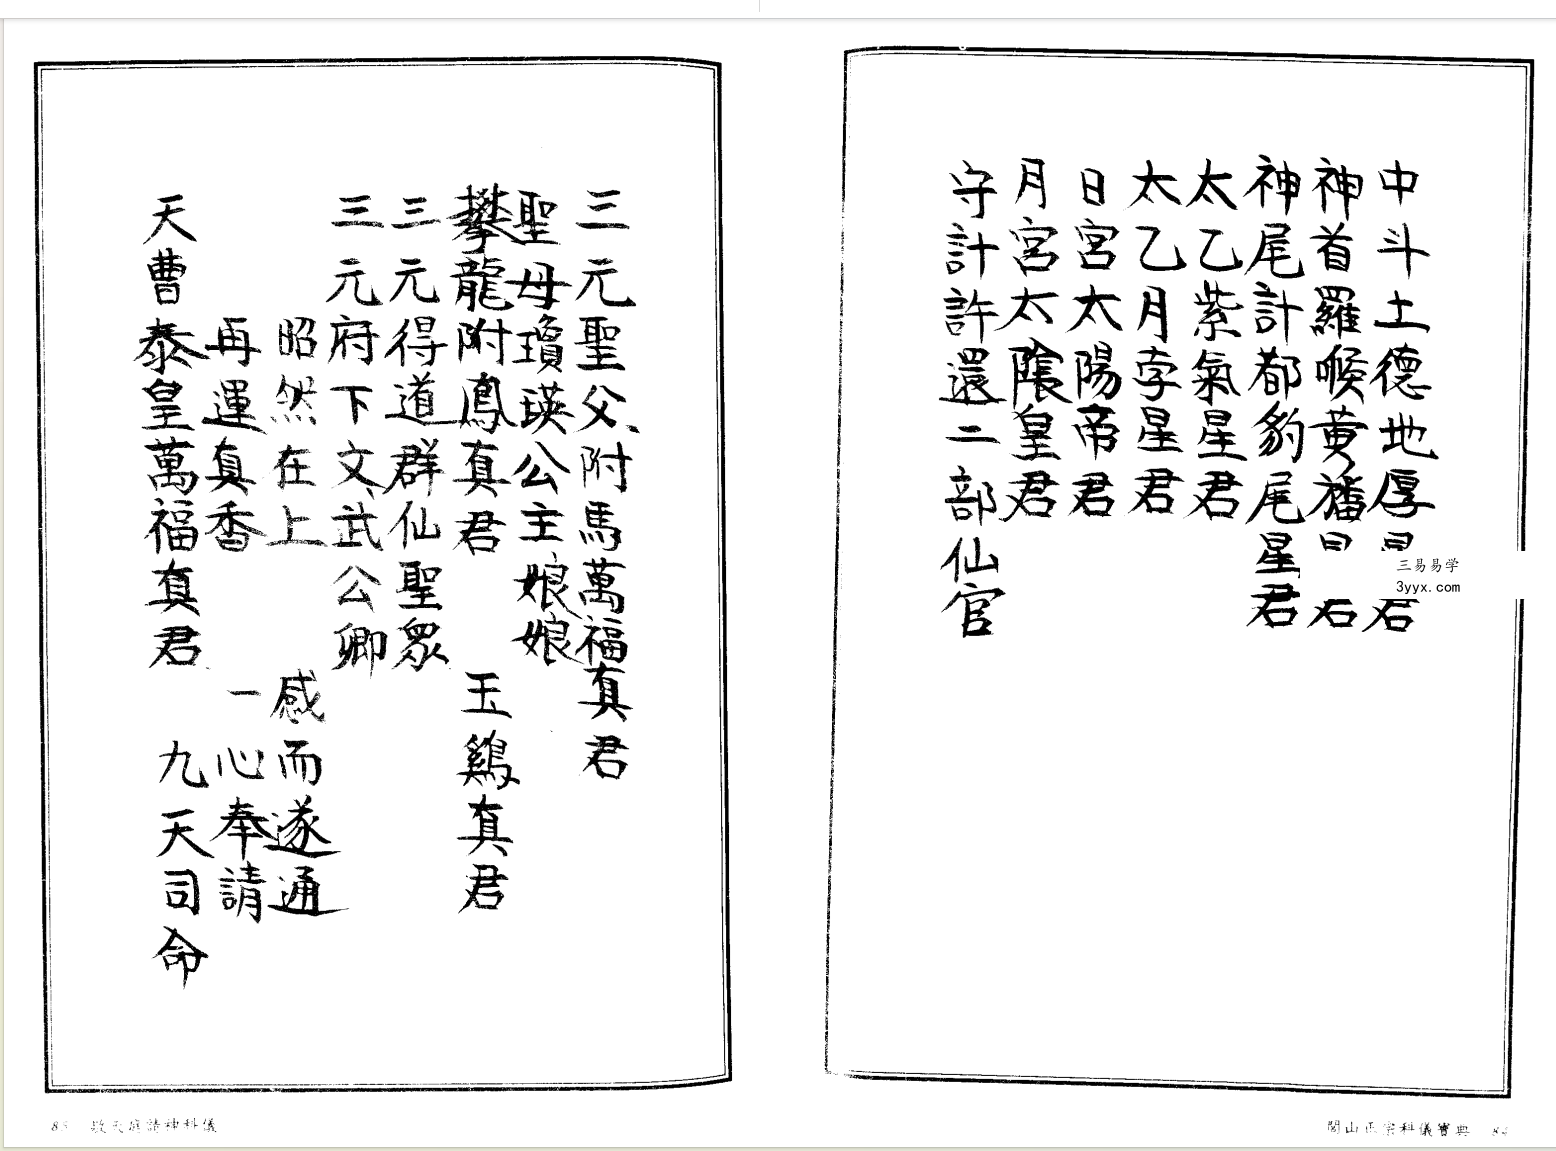 中斗土德地厚星君
神首羅睺黃旛星君
神尾計都豹尾星君
太乙紫氣星君
太乙月孛星君
日宮太陽帝君
月宮太陰皇君
守計許還二部仙官
三易易学
3yyx.com
閭山正宗科儀寶典 84
三元聖父附馬萬福真君
聖母瓊瑛公主娘娘
攀龍附鳳真君 玉鷄真君
三元得道群仙聖眾
三元府下文武公卿
昭然在上 感而遂通
再運真香 一心奉請
天曹泰皇萬福真君 九天司命
85 敬天庭請神科儀